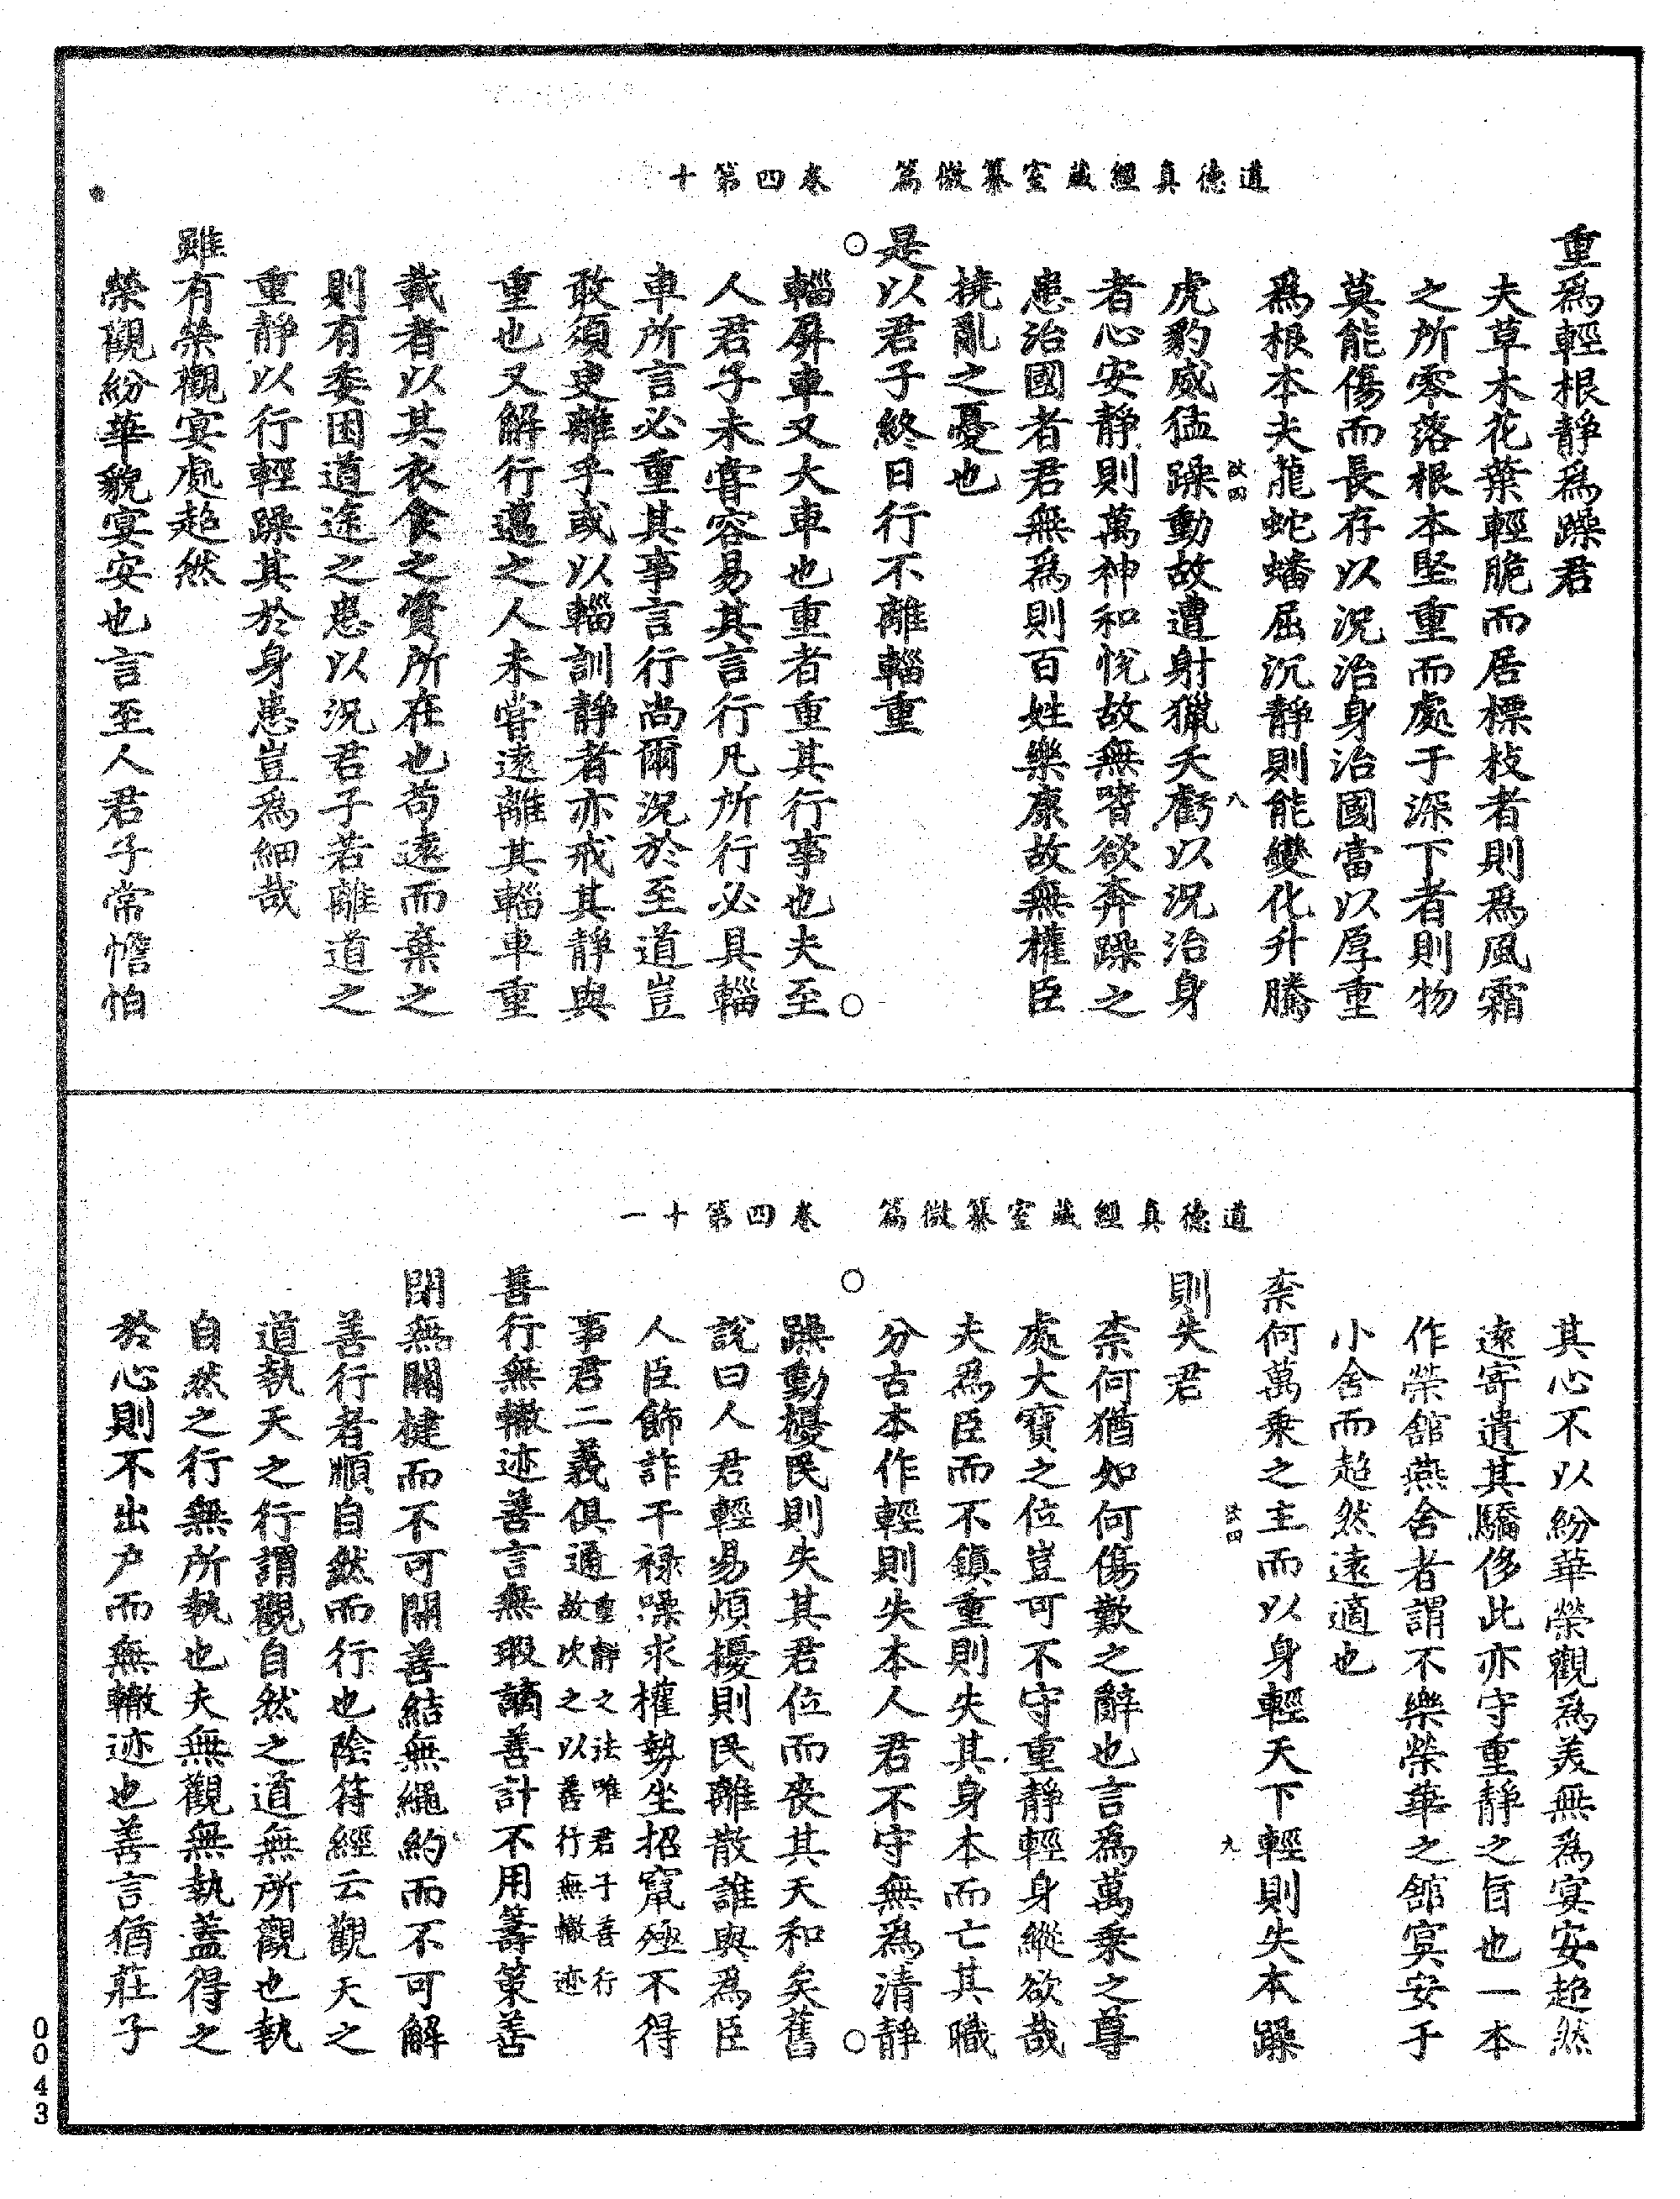 道德真經藏室纂微篇　卷四第十
重為輕根靜為躁君
夫草木花葉輕脆而居標枝者則為風霜
之所零落根本堅重而處于深下者則物
莫能傷而長存以況治身治國當以厚重
為根本夫龍蛇蟠屈沉靜則能變化升騰
四
八
虎豹威猛躁動故遭射獵夭虧以況治身
者心安靜則萬神和悅故無嗜欲奔躁之
患治國者君無為則百姓樂康故無權臣
撓亂之憂也
○
○
是以君子終日行不離輜重
輜屏車又大車也重者重其行事也夫至
人君子未甞容易其言行凡所行必具輜
車所言必重其事言行尚爾況於至道豈
敢須臾離乎或以輜訓靜者亦戒其靜與
重也又解行邁之人未嘗遠離其輜車重
載者以其衣食之資所在也苟遠而棄之
則有委困道途之患以況君子若離道之
重靜以行輕躁其於身患豈為細哉
雖有榮觀宴處超然
榮觀紛華貌宴安也言至人君子常憺怕
道德真經藏室纂微篇　卷四第十一
其心不以紛華榮觀為美無為宴安超然
遠寄遺其驕侈此亦守重靜之旨也一本
作榮舘燕舍者謂不樂榮華之舘宴安于
小舍而超然遠適也
柰何萬乘之主而以身輕天下輕則失本躁
四
九
則失君
柰何猶如何傷歎之辭也言為萬乘之尊
處大寶之位豈可不守重靜輕身縱欲哉
夫為臣而不鎮重則失其身本而亡其職
分古本作輕則失本人君不守無為清靜
○
○
躁動擾民則失其君位而喪其天和矣舊
說曰人君輕易煩擾則民離散誰與為臣
人臣飾詐干祿躁求權勢坐招竄殛不得
事君二義俱通重靜之法唯君子善行故次之以善行無轍迹
善行無轍迹善言無瑕讁善計不用籌策善
閉無關楗而不可開善結無繩約而不可解
善行者順自然而行也陰符經云觀天之
道執天之行謂觀自然之道無所觀也執
自然之行無所執也夫無觀無執蓋得之
於心則不出戶而無轍迹也善言猶莊子
0043